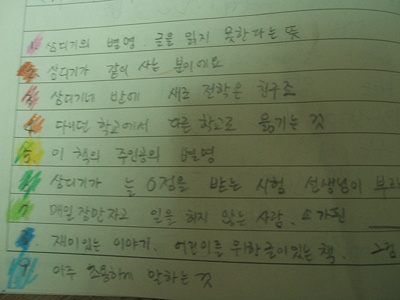 1. 상더기의 별명. 글을 읽지 못한다는 뜻
2. 상더기가 같이 사는 분이에요
3. 상더기네 반에 새로 전학온 친구죠
4. 다니던 학교에서 다른 학교로 옮기는 것
5. 이 책의 주인공의 별명
6. 상더기가 늘 0점을 받는 시험. 선생님이
7. 매일 잠만자고 일을 하지 않는 사람. 소가된
8. 재미있는 이야기. 어린이를 위한 글이 있는 책.
9. 아주 조용하게 말하는 것